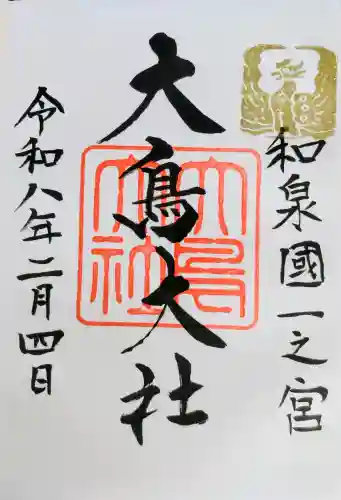 和泉國一之宮
大鳥大社
令和八年二月四日
大鳥大社